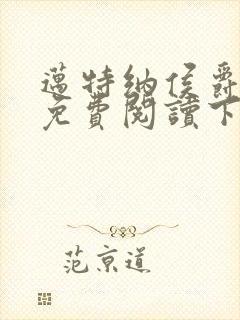 邁特納侯爵
免費閱讀下
范京道